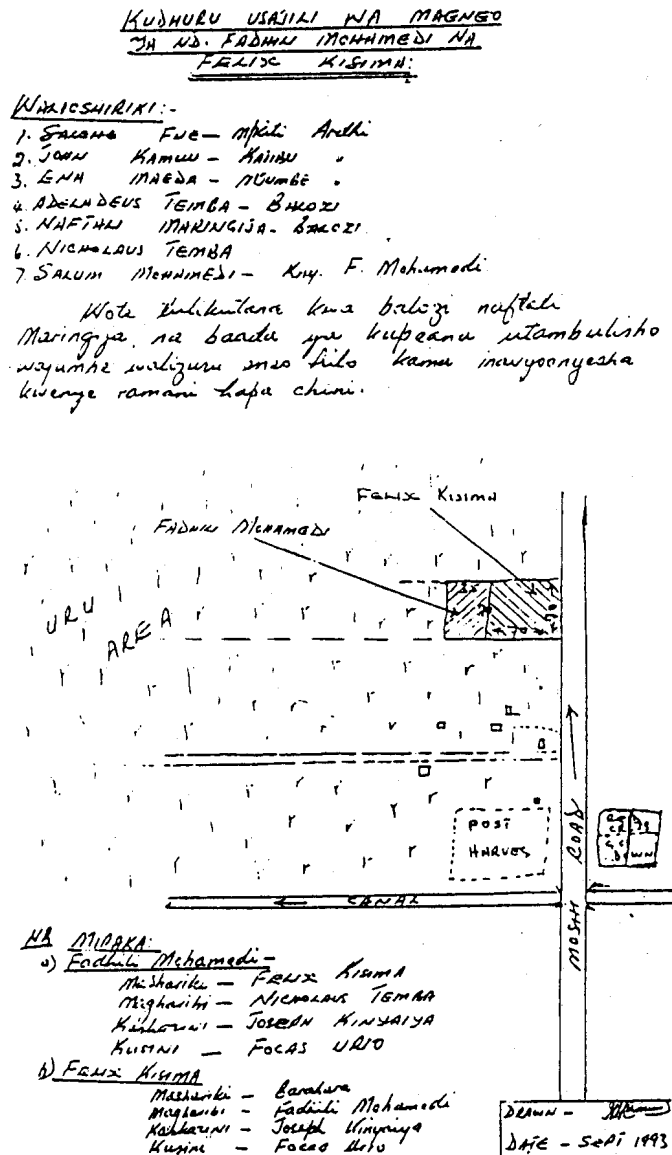 KUDHURU USAJILI WA MAGNEO
YA ND. FADHILI MOHAMEDI NA
FELIX KISIMA:
WALIOSHIRIKI:-
1. FUE - Mkiti Ardhi
2. JOHN - KATIBU "
3. ENA MAEDA - MJUMBE "
4. ADELADEUS TEMBA - BALOZI
5. NAFTALI MARINGIJA - BALOZI
6. NICHOLAUS TEMBA
7. SALUM MOHAMEDI - Kny. F. Mohamedi
Wote kwa balozi naftali
Maringija, na baada ya kupeana utambulisho
wajumbe walizuru eneo hilo kama inavyoonyesha
kwenye ramani hapa chini.
FELIX KISIMA
FADHILI MOHAMEDI
URU
AREA
70
70
POST
HARVES
MOSHI ROAD
CANAL
MIPAKA:
a) Fadhili Mohamedi -
Mashariki - FELIX KISIMA
Magharibi - NICHOLAUS TEMBA
Kaskazini - JOSEPH KINYAIYA
KUSINI - FOCAS URIO
b) FELIX KISIMA
Mashariki - Barabara
Magharibi - Fadhili Mohamedi
Kaskazini - Joseph Kinyaiya
Kusini - Focas Urio
DRAWN -
DATE - SEPT 1993